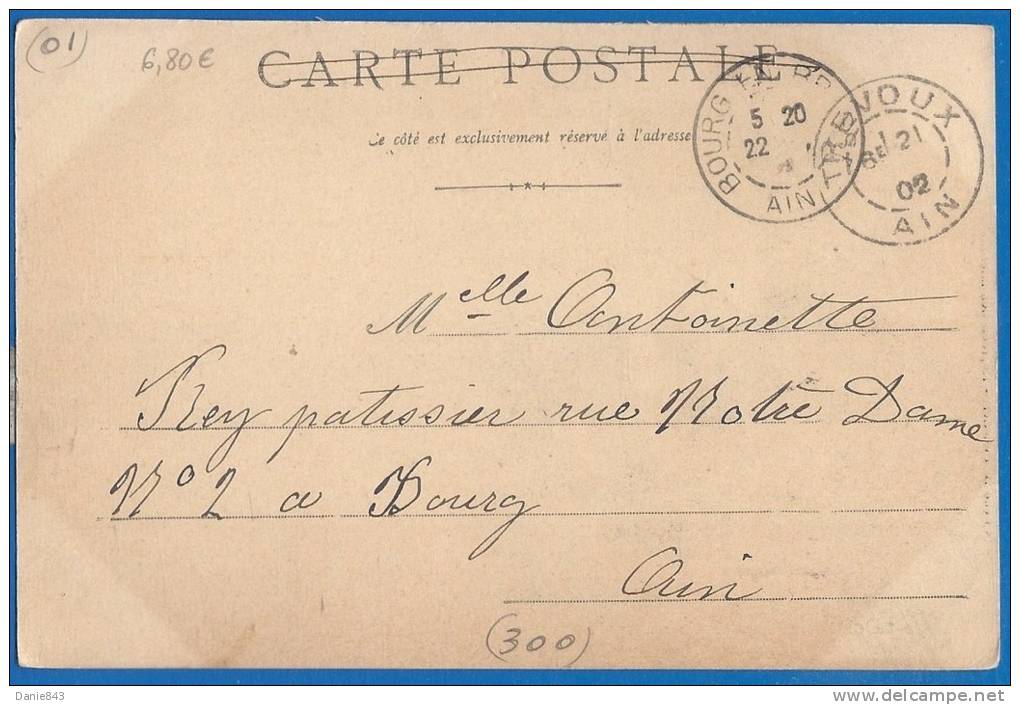 (01)
6,80€
CARTE POSTALE
Ce côté est exclusivement réservé à l'adresse
BOURG
5 20
22
AIN
TREVOUX
21
02
AIN
Mlle Antoinette
Rey patissier rue Notre Dame
No 2 a Bourg
Ain
(300)
Danie843
www.delcampe.net